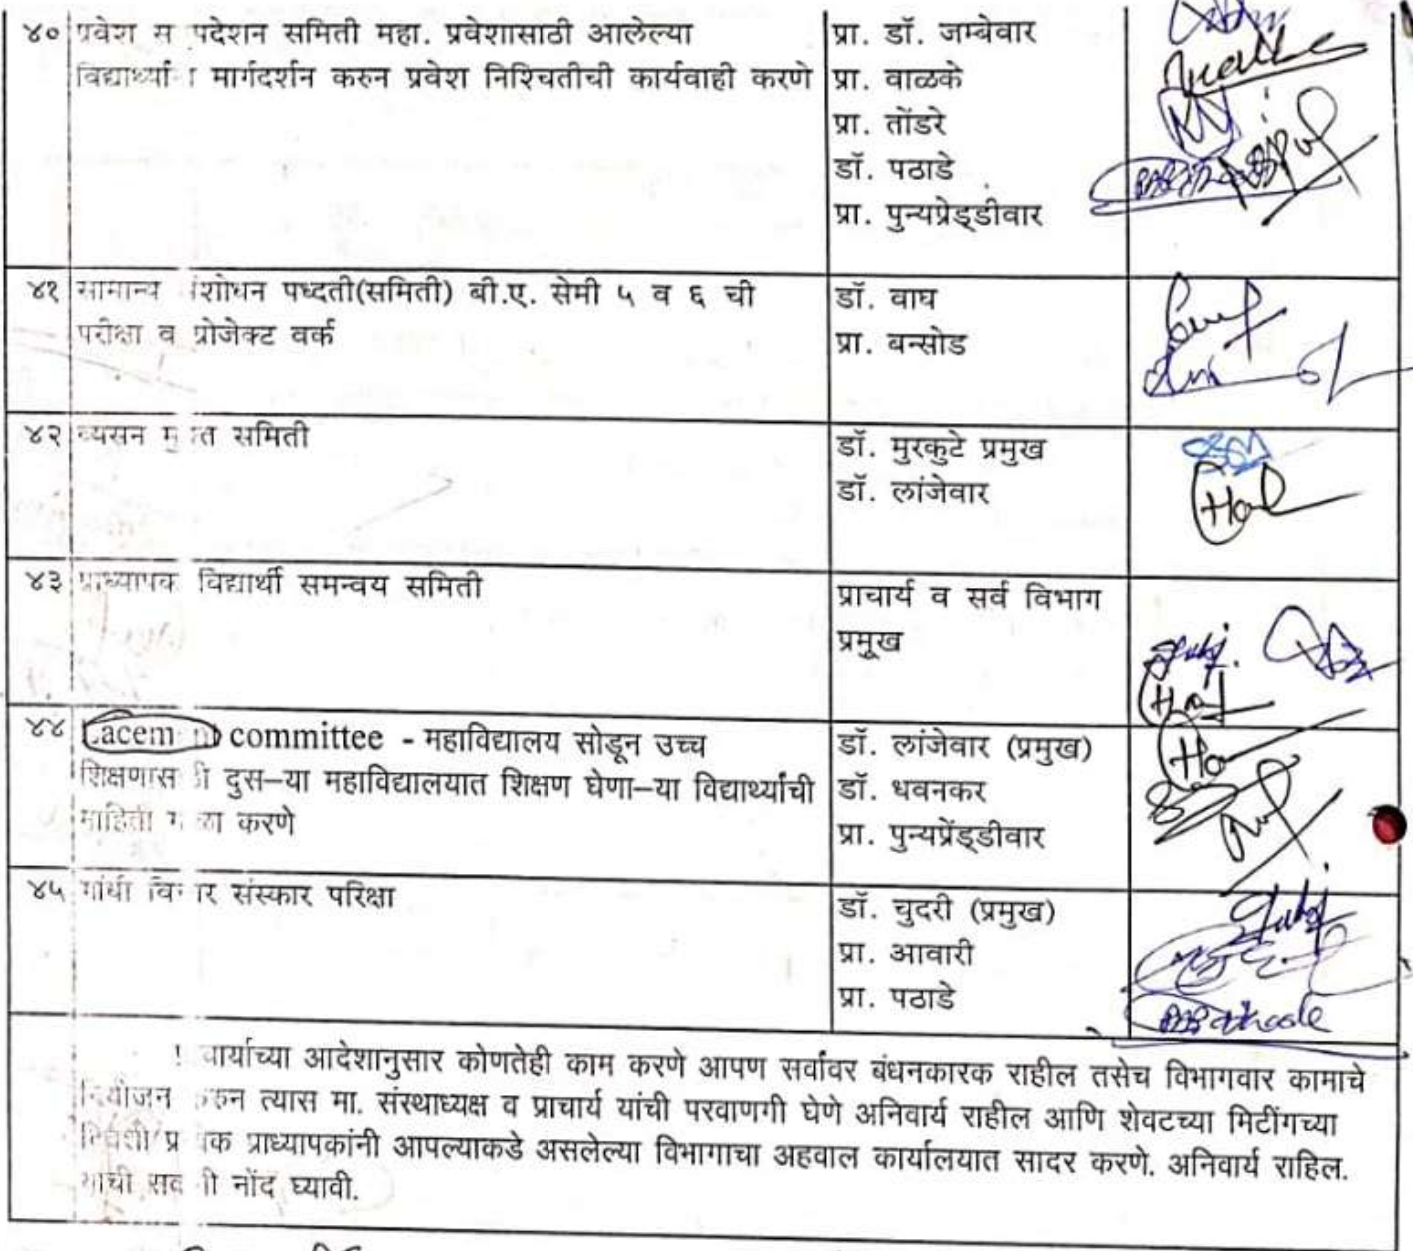 ४० प्रवेश स पदेशन समिती महा. प्रवेशासाठी आलेल्या
विद्यार्थ्यांना मार्गदर्शन करुन प्रवेश निश्चितीची कार्यवाही करणे
प्रा. डॉ. जम्बेवार
प्रा. वाळके
प्रा. तोंडरे
डॉ. पठाडे
प्रा. पुन्यप्रेड्डीवार
४१ सामान्य संशोधन पध्दती(समिती) बी.ए. सेमी ५ व ६ ची
परीक्षा व प्रोजेक्ट वर्क
डॉ. वाघ
प्रा. बन्सोड
४२ व्यसन मुक्त समिती
डॉ. मुरकुटे प्रमुख
डॉ. लांजेवार
४३ प्राध्यापक विद्यार्थी समन्वय समिती
प्राचार्य व सर्व विभाग
प्रमूख
४४ committee - महाविद्यालय सोडून उच्च
शिक्षणासाठी दुस-या महाविद्यालयात शिक्षण घेणा-या विद्यार्थ्यांची
माहिती गोळा करणे
डॉ. लांजेवार (प्रमुख)
डॉ. धवनकर
प्रा. पुन्यप्रेंड्डीवार
४५ गांधी विचार संस्कार परिक्षा
डॉ. चुदरी (प्रमुख)
प्रा. आवारी
प्रा. पठाडे
प्राचार्याच्या आदेशानुसार कोणतेही काम करणे आपण सर्वांवर बंधनकारक राहील तसेच विभागवार कामाचे
नियोजन करुन त्यास मा. संस्थाध्यक्ष व प्राचार्य यांची परवाणगी घेणे अनिवार्य राहील आणि शेवटच्या मिटींगच्या
प्रत्येक प्राध्यापकांनी आपल्याकडे असलेल्या विभागाचा अहवाल कार्यालयात सादर करणे. अनिवार्य राहिल.
याची सर्वांनी नोंद घ्यावी.